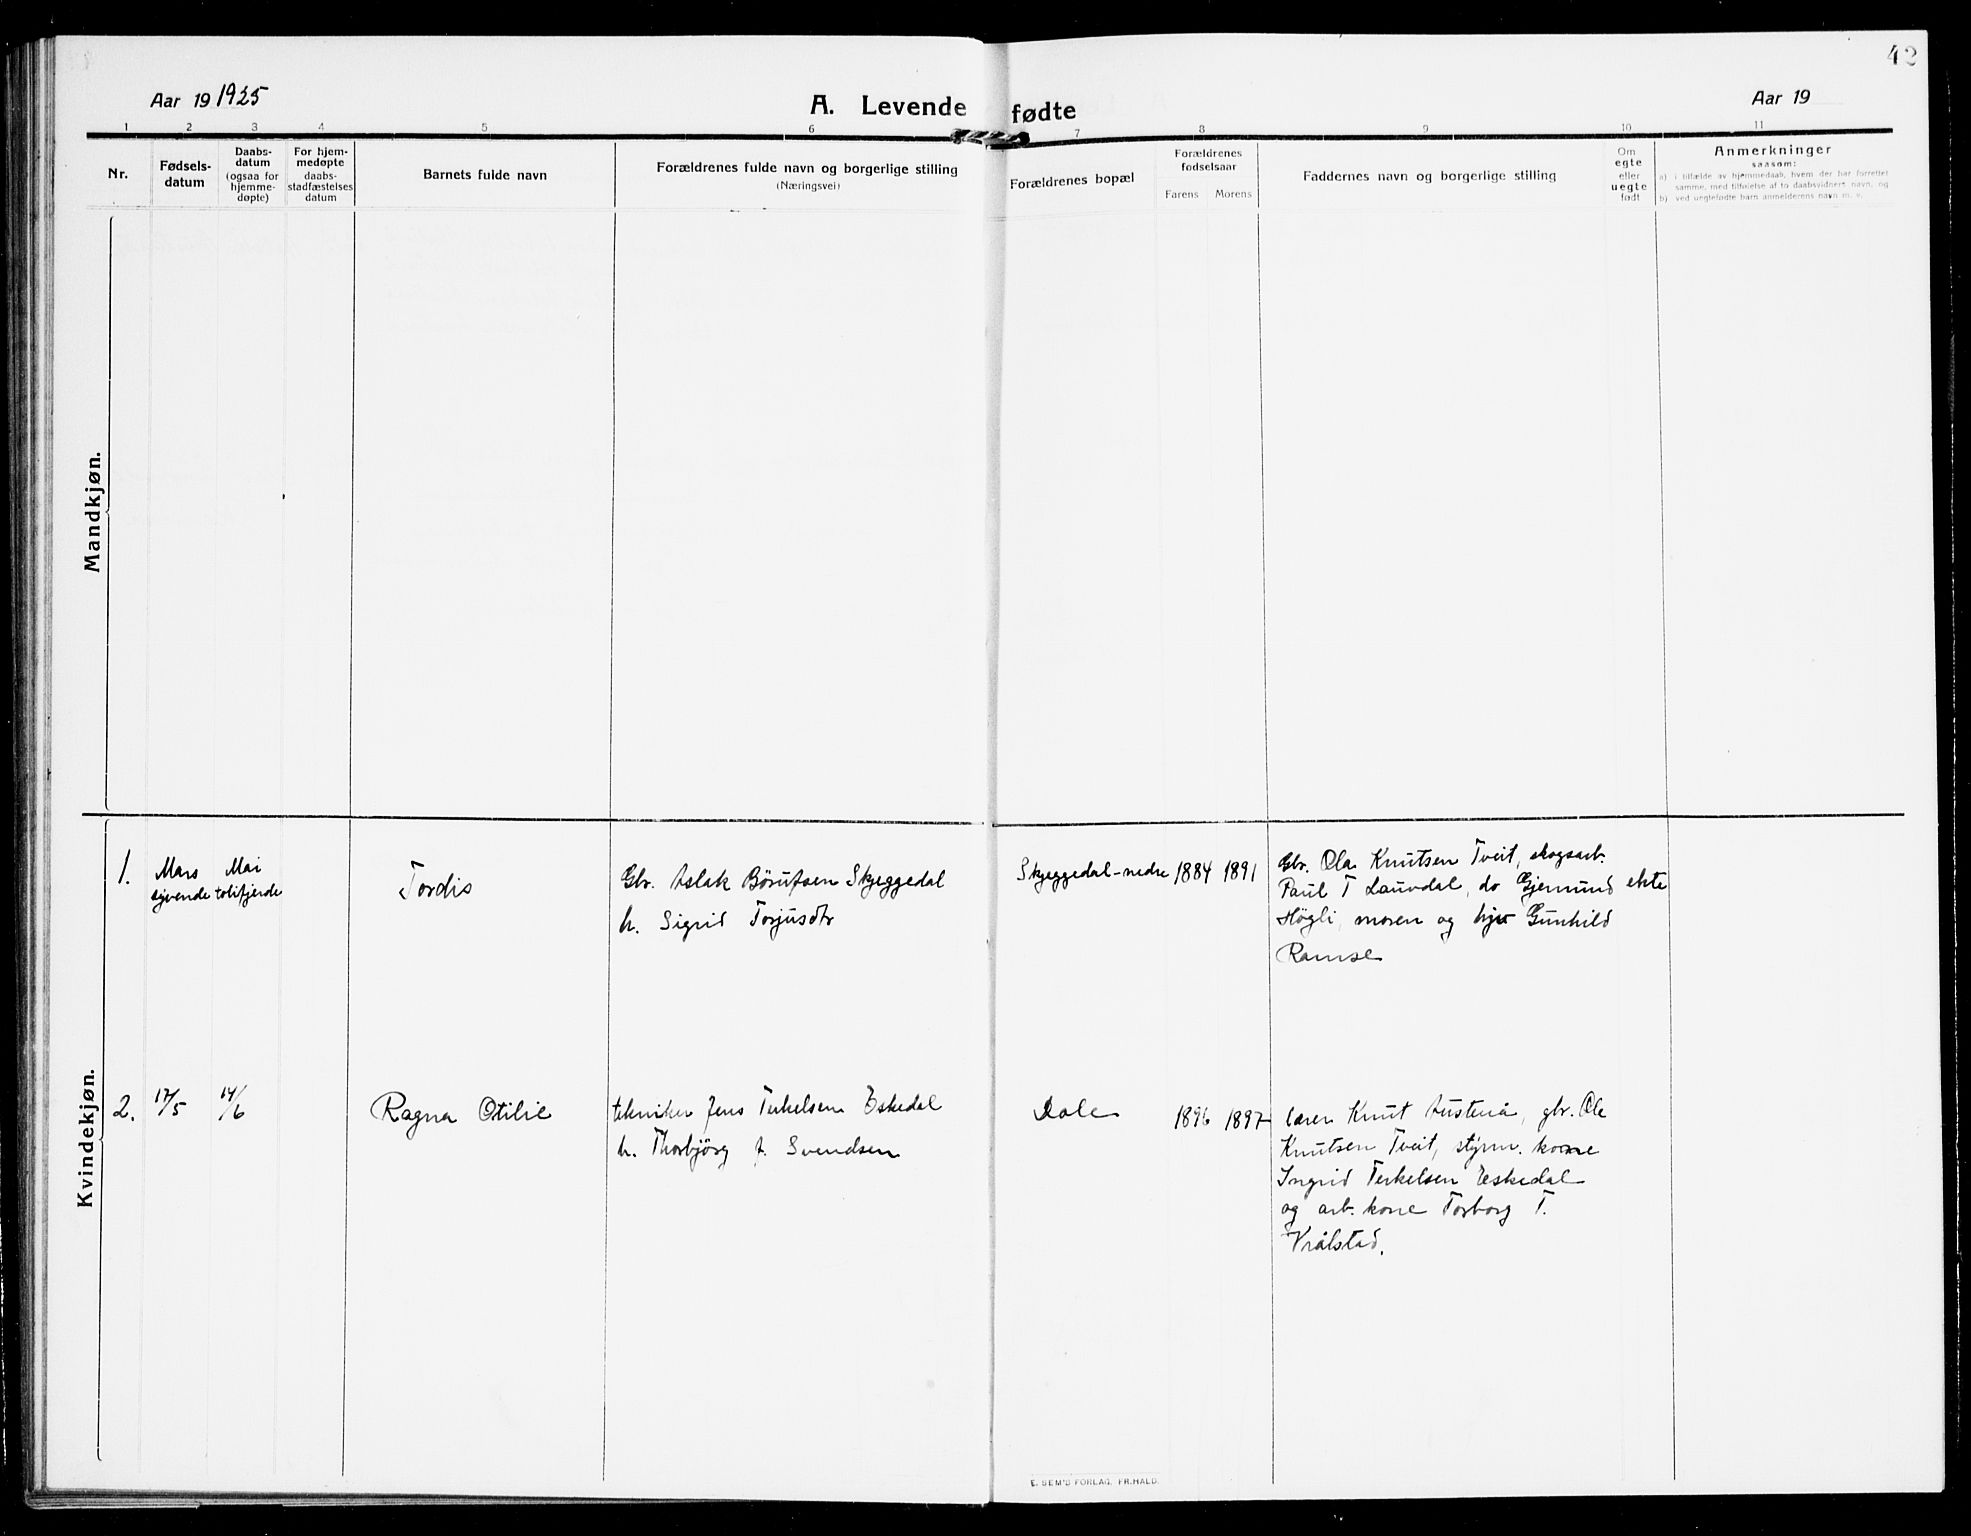 42
Aar 19 1925
A. Levende fødte
Aar 19
1 2 3 4 5 6 7 8 9 10 11
Nr.
Fødsels-
datum
Daabs-
datum
(ogsaa for
hjemme-
døpte)
For hjem-
medøpte
daabs-
stadfæstelses
datum
Barnets fulde navn
Forældrenes fulde navn og borgerlige stilling
(Næringsvei)
Forældrenes bopæl
Forældrenes
fødselsaar
Farens Morens
Faddernes navn og borgerlige stilling
Om
egte
eller
uegte
født
Anmerkninger
saasom:
a) i tilfælde av hjemmedaab, hvem der har forrettet
samme, med tilføielse af to daabsvidners navn, og
b) ved uegtefødte barn anmelderens navn m. v.
Mandkjøn.
Kvindekjøn.
1.
Mars
syvende
Mai
Tordis
Gbr. Aslak Børufsen Skjeggedal
h. Sigrid Torjusdtr
Skjeggedal-nedre
1884 1891
Gbr. Ola Knutsen Tveit, skogsarb.
Paul T Lauvdal, do Gjermund
Høgli, moren og Gunhild
Ramse
ekte
2.
17/5
14/6
Ragna Otilie
tekniker Jens Terkelsen Eskedal
h. Thorbjörg f. Svendsen
Dale
1896 1897
lærer Knut Austenå, gbr. Ole
Knutsen Tveit, styrm. kone
Ingrid Terkelsen Eskedal
og arb. kone Torborg T.
Vrålstad.
E. SEM'S FORLAG, FR.HALD.